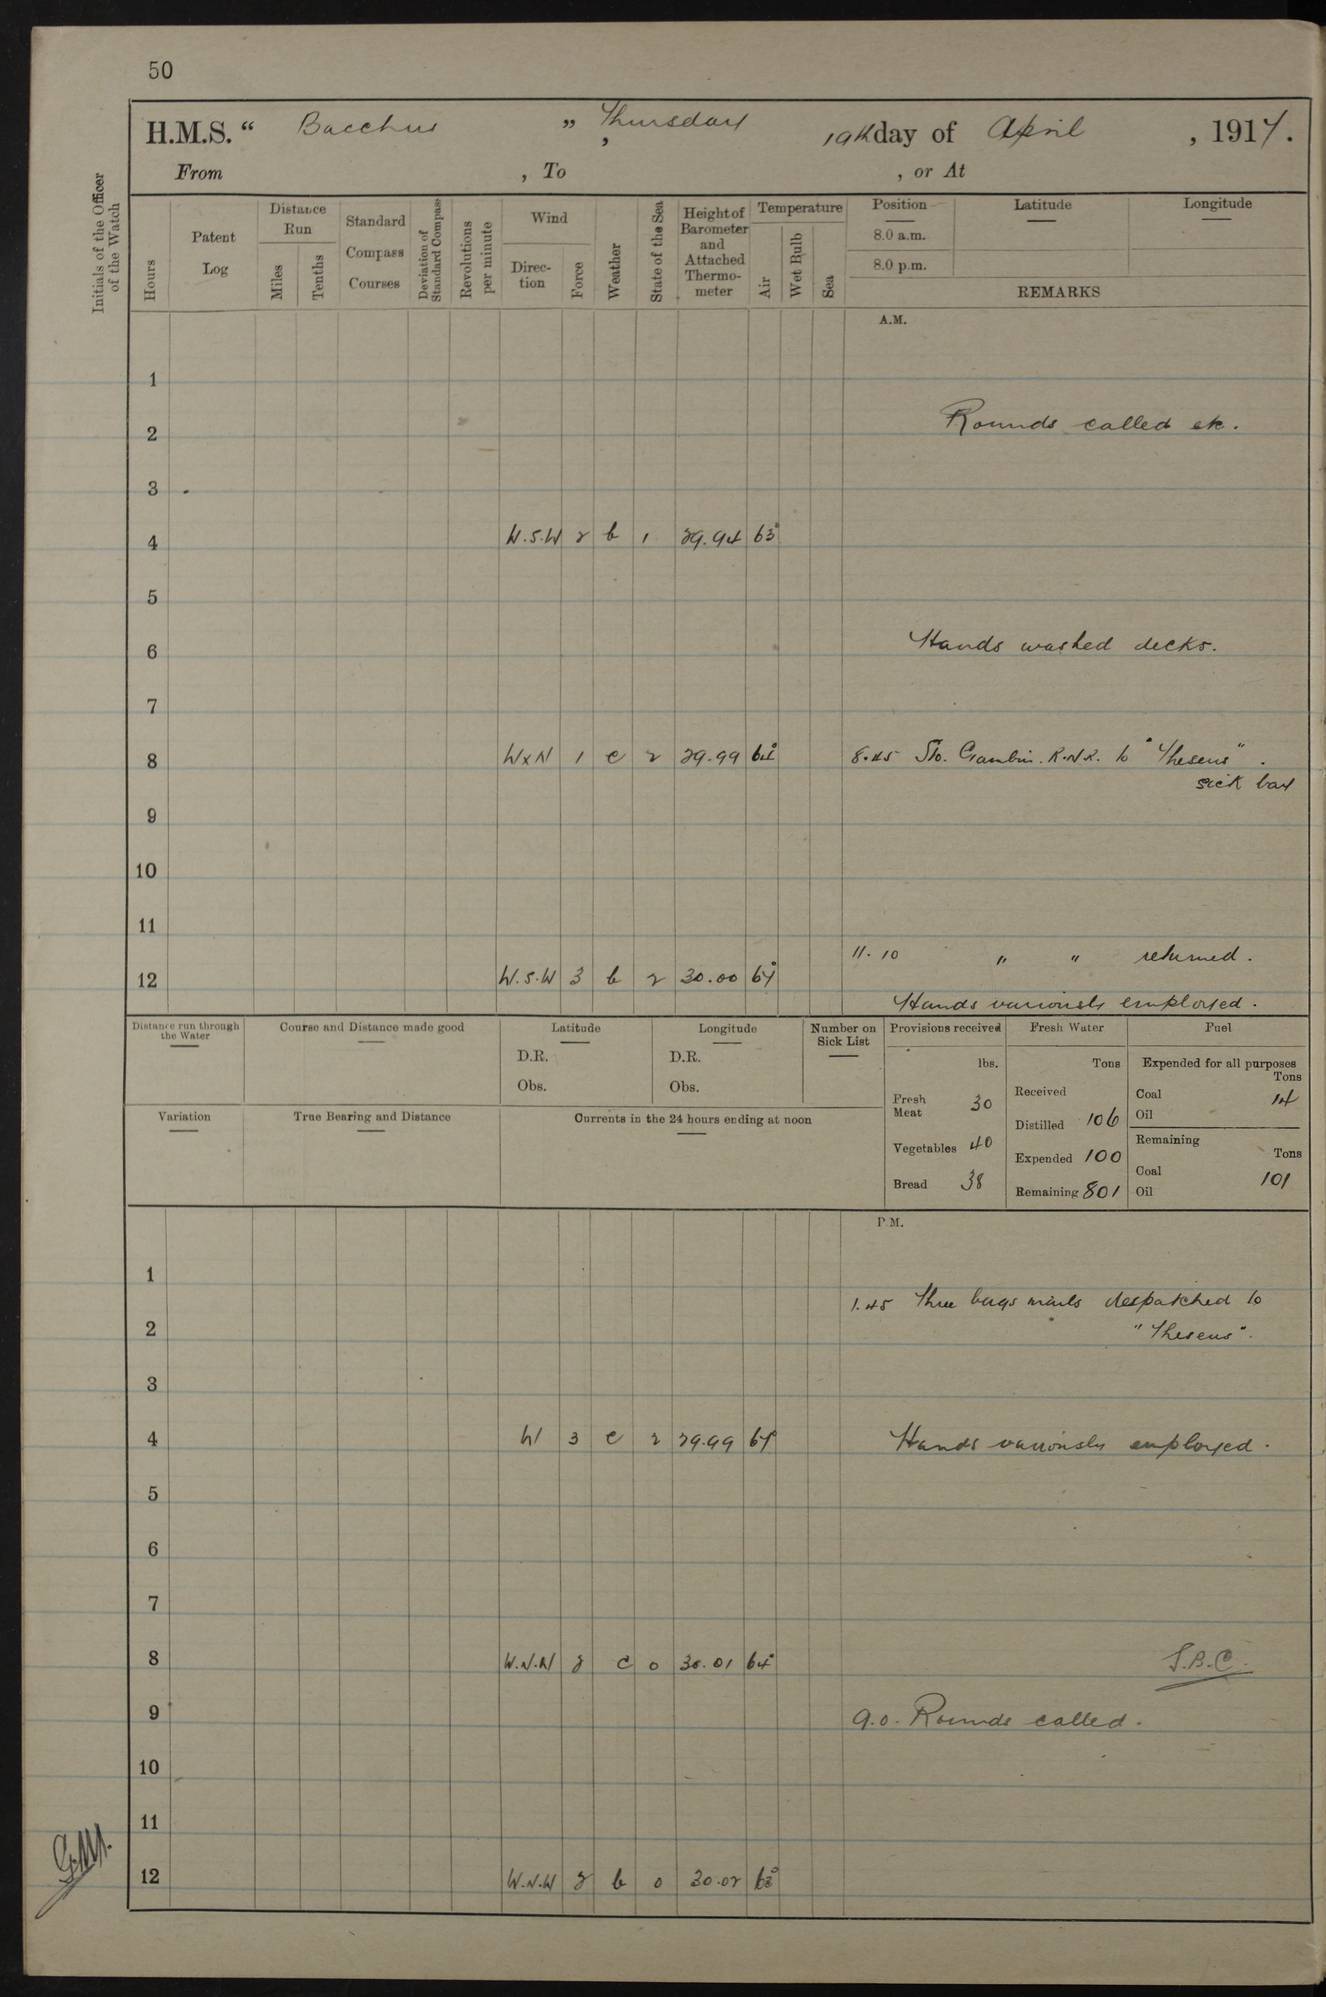 50
H.M.S. " Bacchus " , Thursday 19th day of April , 1917.
From , To , or At
Initials of the Officer of the Watch
Hours
Patent Log
Distance Run
Miles
Tenths
Standard Compass Courses
Deviation of Standard Compass
Revolutions per minute
Wind
Direc-tion
Force
Weather
State of the Sea
Height of Barometer and Attached Thermo-meter
Temperature
Air
Wet Bulb
Sea
Position
8.0 a.m.
8.0 p.m.
Latitude
Longitude
REMARKS
A.M.
1
Rounds called etc.
2
3
4 W.S.W 2 b 1 29.94 63°
5
Hands washed decks.
6
7
8 WxN 1 c 2 29.99 64° 8.45 Sto. Gambin. R.N.R. to "Theseus".
sick bay
9
10
11
11.10 " " returned.
12 W.S.W 3 b 2 30.00 67°
Hands variously employed.
Distance run through the Water
Course and Distance made good
Latitude
D.R.
Obs.
Longitude
D.R.
Obs.
Number on Sick List
Provisions received
lbs.
Fresh Meat 30
Vegetables 40
Bread 38
Fresh Water
Tons
Received
Distilled 106
Expended 100
Remaining 801
Fuel
Expended for all purposes
Tons
Coal 14
Oil
Remaining
Tons
Coal 101
Oil
Variation
True Bearing and Distance
Currents in the 24 hours ending at noon
P.M.
1
1.45 Three bags mails despatched to
2 "Theseus".
3
4 W 3 c 2 29.99 67° Hands variously employed.
5
6
7
8 W.N.W 2 c 0 30.01 64° S.B.C.
9 9.0. Rounds called.
10
11
G.M.
12 W.N.W 2 b 0 30.02 63°